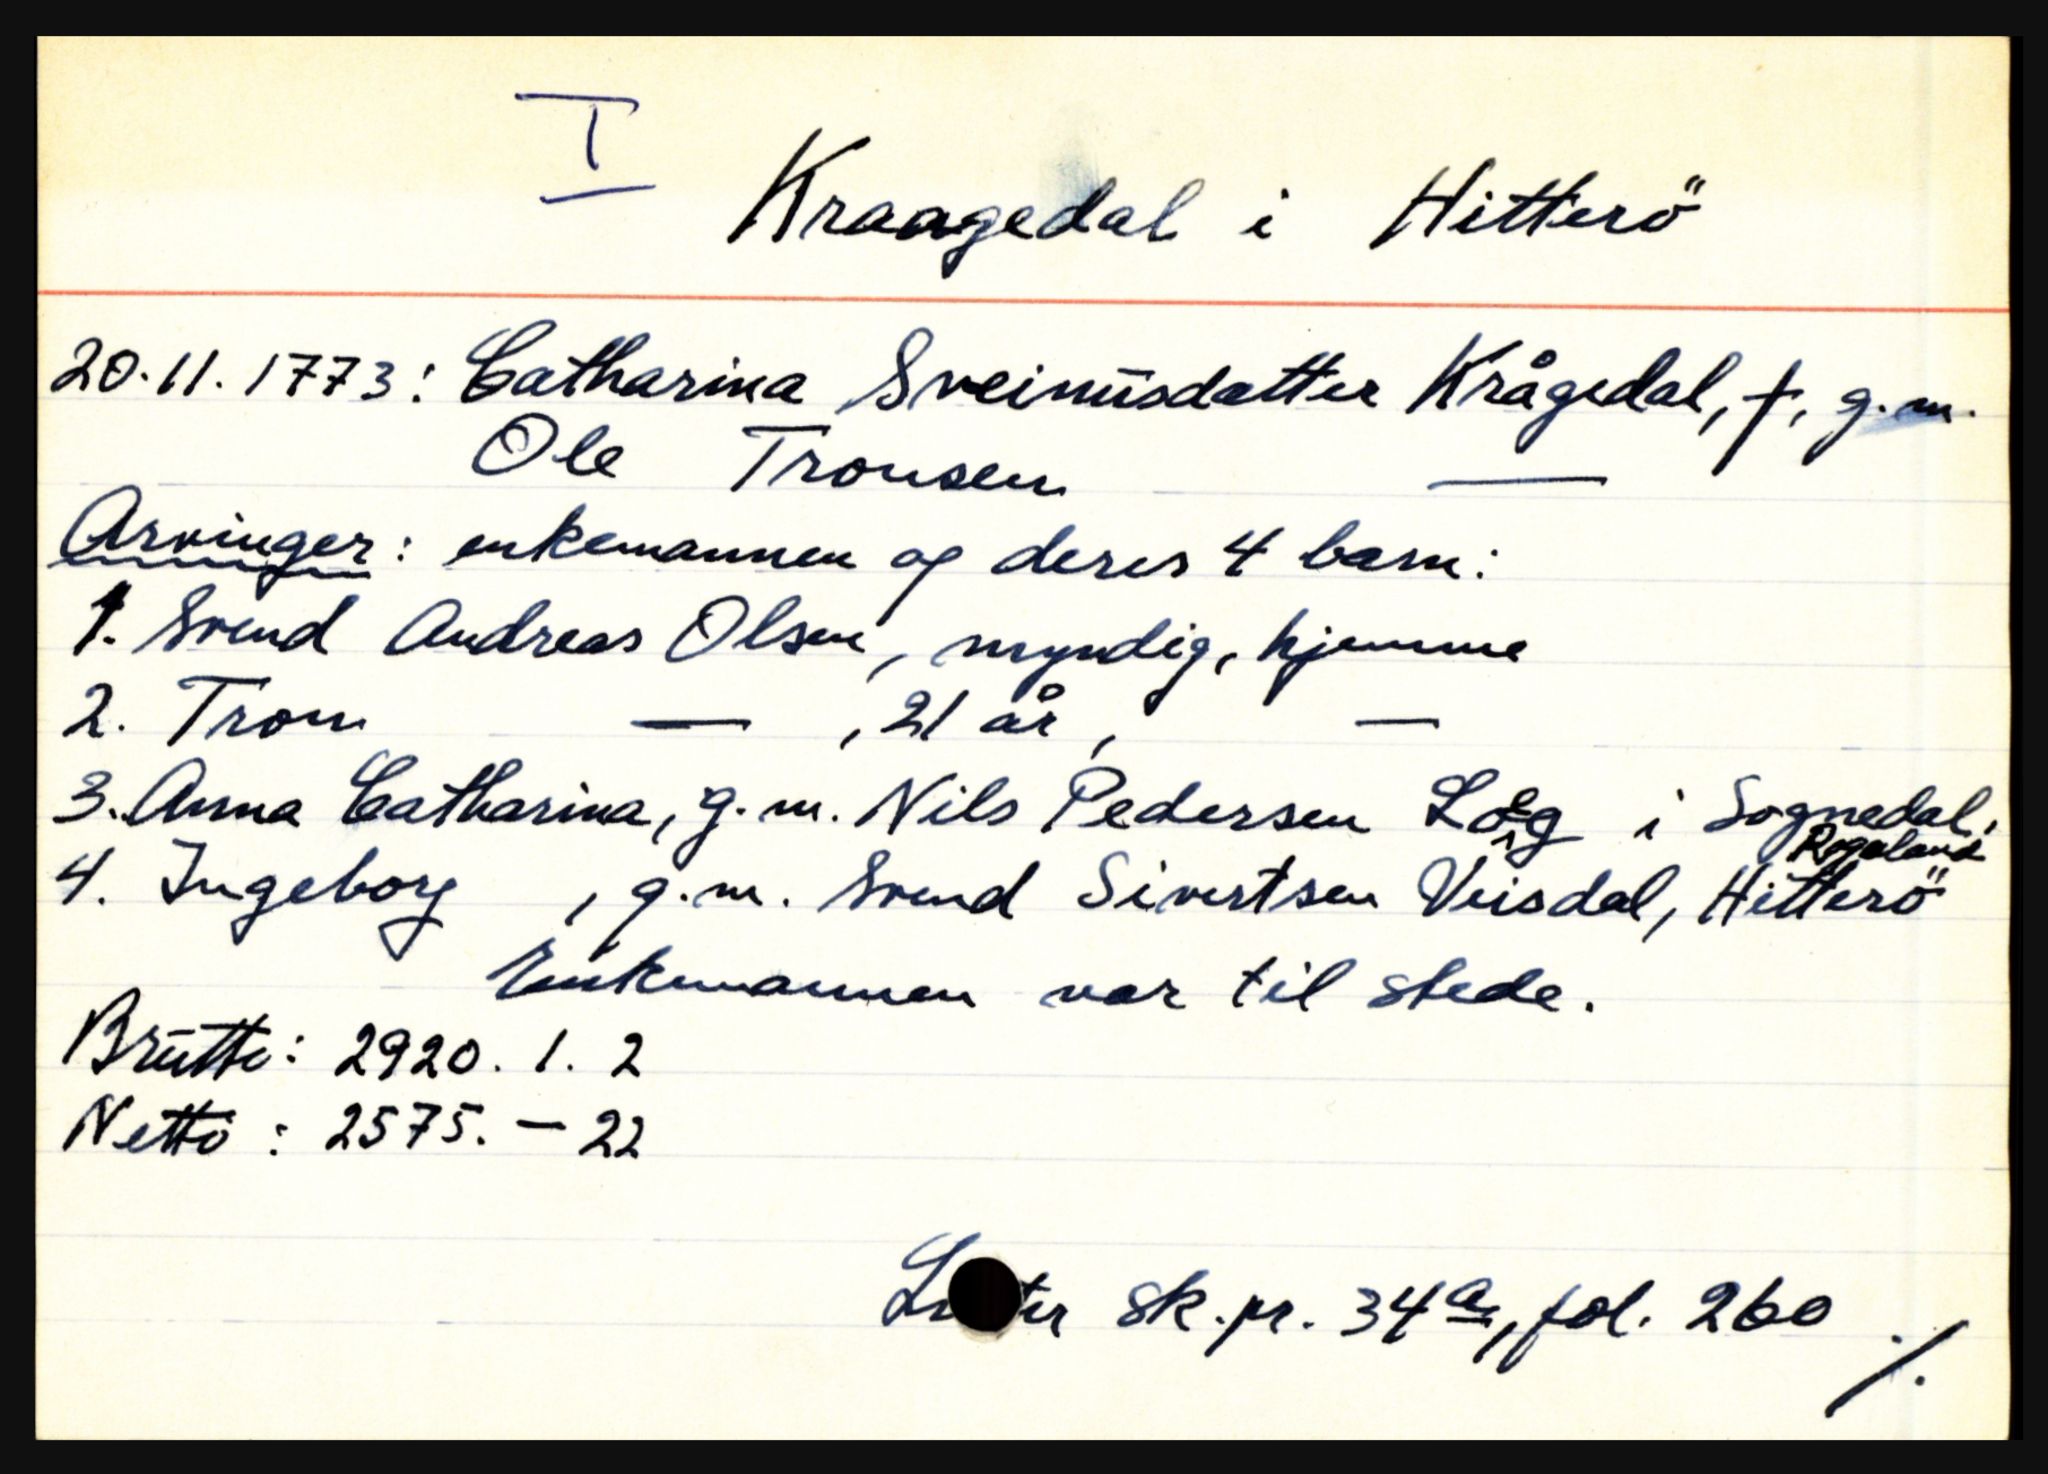 I
Kraagedal i Hitterö
20.11.1773: Catharina Sveinusdatter Krågedal, †, g.m.
Ole Tronsen —
Arvinger: enkemannen og deres 4 barn:
1. Svend Andreas Olsen, myndig, hjemme
2. Tron — , 21 år, —
3. Anna Catharina, g.m. Nils Pedersen Loeg i Sognedal,
Rogaland
4. Ingeborg , g.m. Svend Sivertsen Veisdal, Hitterö
Enkemannen var til stede.
Brutto: 2920. 1. 2
Netto: 2575. – 22
sk.pr. 34a, fol. 260
./.